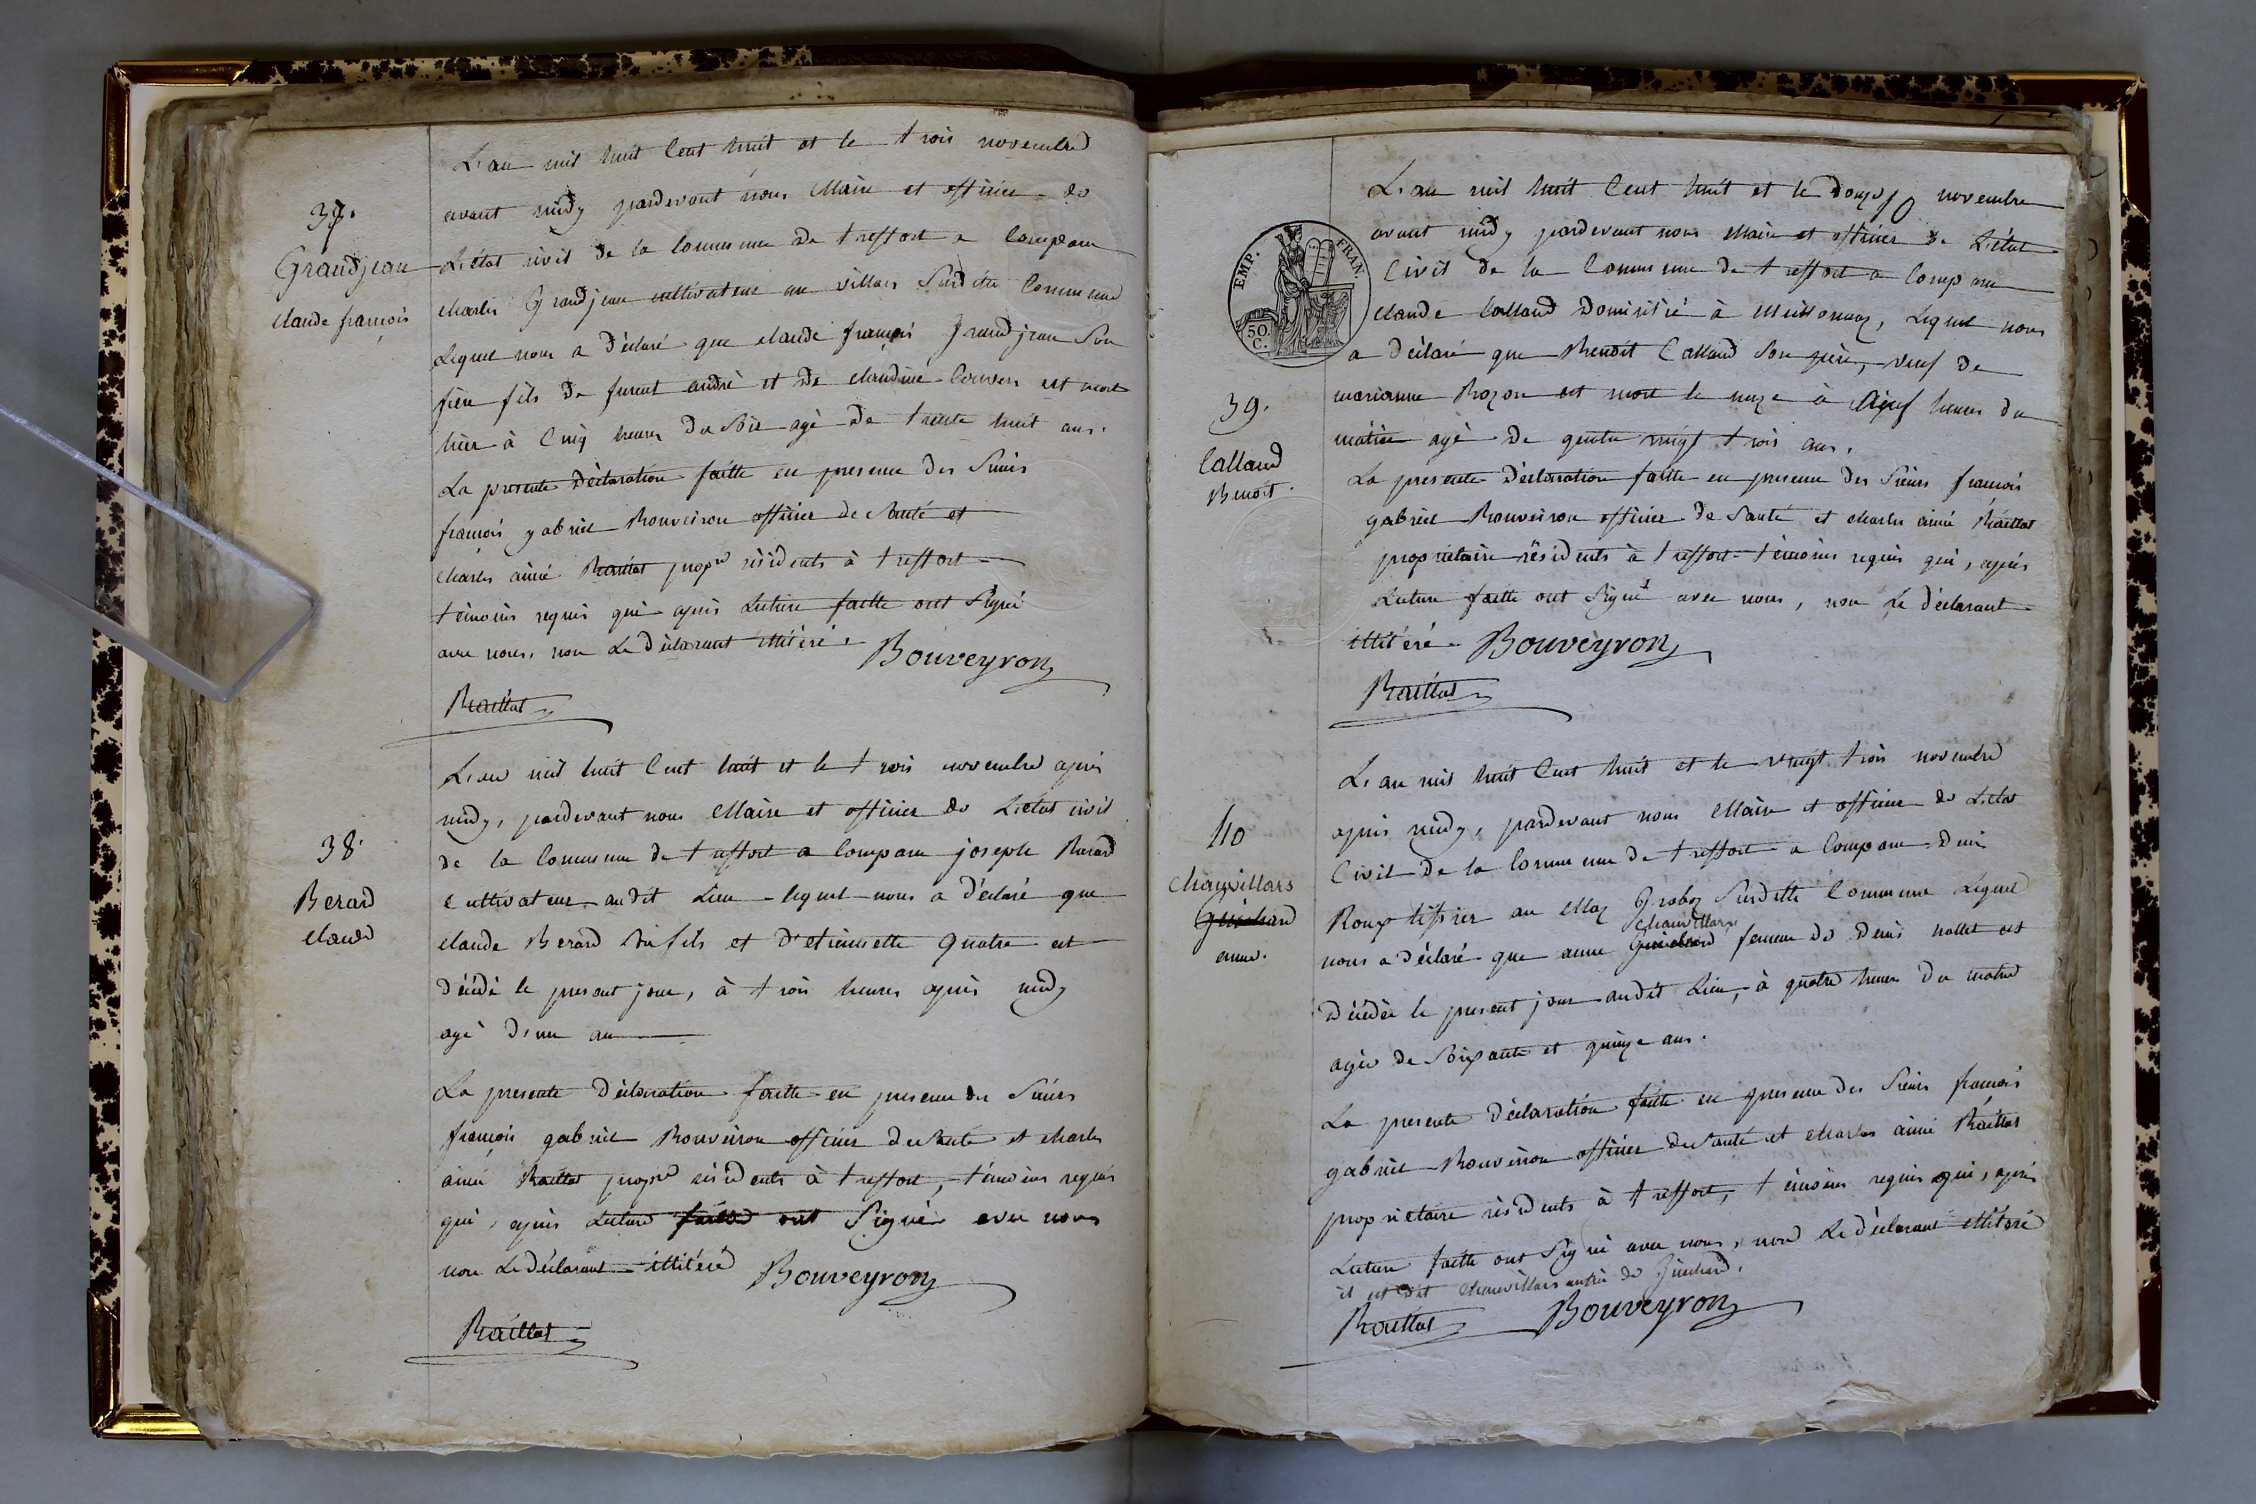 37.
Grandjean
claude françois
L'an mil huit Cent huit et le trois novembre
avant midy pardevant nous Maire et officier de
L'état civil de la Commune de treffort a Comparu
charles Grandjean cultivateur au villars Susditte Commune
Lequel nous a déclaré que claude françois Grandjean Son
frère fils de furent andré et de claudine est mort
hier à Cinq heures du Soir agé de trente huit ans.
La presente déclaration faitte en presence des Sieurs
françois gabriel Bouveiron officier de Santé et
charles aimé Raillat propre résidents à treffort
témoins requis qui après Lecture faitte ont Signé
avec nous, non Le déclarant illitéré.
Bouveyron
Raillat
38.
Berard
claude
L'an mil huit Cent huit et le trois novembre après
midy, pardevant nous Maire et officier de L'état civil
de la Commune de treffort a Comparu joseph Berard
Cultivateur audit Lieu lequel nous a déclaré que
claude Berard Son fils et d'etiennette Quatre est
décédé le present jour, à trois heures après midy
agé d'un an
La presente déclaration faitte en presence des Sieurs
françois gabriel Bouveiron officier de Santé et charles
aimé Raillat propre résidents à treffort, témoins requis
qui, après Lecture faitte ont Signé avec nous
non Le déclarant illitéré
Bouveyron
Raillat
EMP. FRAN.
50.
C.
39.
Calland
Benoit.
L'an mil huit Cent huit et le douze novembre
avant midy pardevant nous Maire et officier de L'état
Civil de la Commune de treffort a Comparu
claude Calland domicilié à Meillonnaz, Lequel nous
a déclaré que Benoit Calland Son père, veuf de
marianne Rozon est mort le onze à Neuf heures du
matin agé de quatre vingt trois ans.
La présente déclaration faitte en presence des Sieurs françois
gabriel Bouveiron officier de Santé et charles aimé Raillat
propriétaire résidents à treffort témoins requis qui, après
Lecture faitte ont Signé avec nous, non Le déclarant
illitéré.
Bouveyron
Raillat
40
Chauvillars
Guichard
anne.
L'an mil huit Cent huit et le vingt trois novembre
après midy, pardevant nous Maire et officier de L'état
Civil de la Commune de treffort a Comparu Denis
Roux tissier au Maz Groboz Susditte Commune Lequel
chauvillars
nous a déclaré que anne Guichard femme de Denis nallet est
décédée le présent jour audit Lieu, à quatre heures du matin
agée de Soixante et quinze ans.
La presente déclaration faitte en presence des Sieurs françois
gabriel Bouveiron officier de Santé et charles aimé Raillat
propriétaire résidents à treffort, témoins requis qui, après
Lecture faitte ont Signé avec nous, non Le déclarant illitéré
il est dit Chauvillars de Guichard.
Raillat Bouveyron